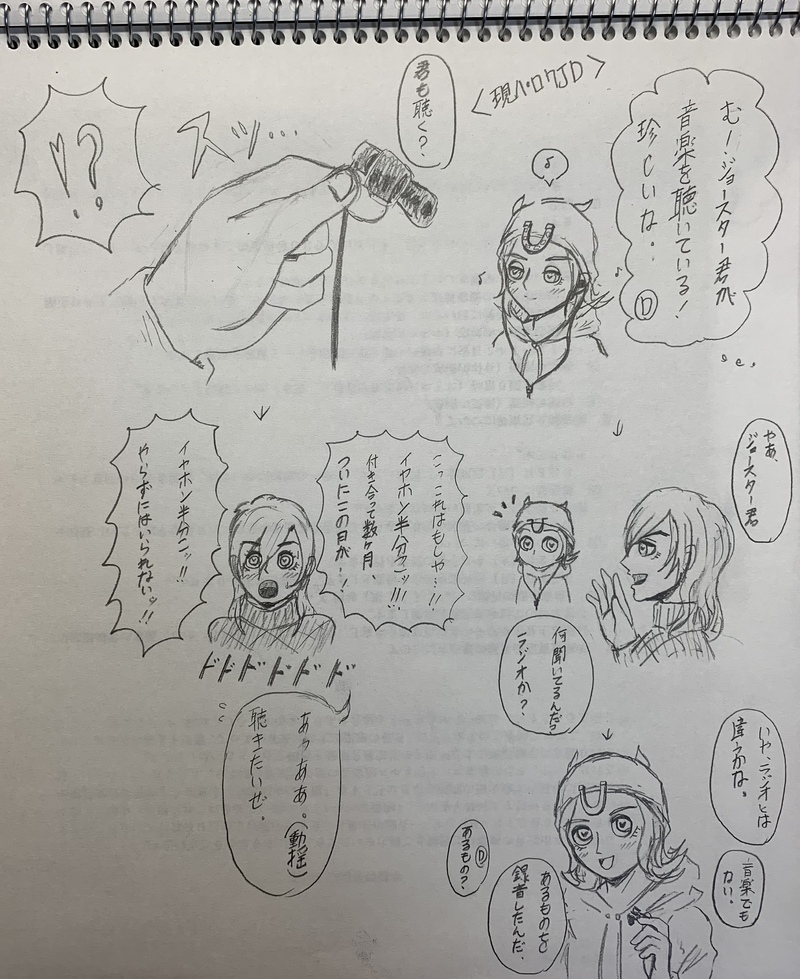 <現パロ7JD>
む!ジョースター君が
音楽を聴いている!
珍しいな。。
Ⓓ
♪
やあ、
ジョースター君
何聞いてるんだ?
ラジオか?
いや、ラジオとは
違うかな。
音楽でも
ない。
あるものを
録音したんだ。
Ⓓ
あるもの?
君も聴く?
スッ…
!?
こっこれはもしや…!!
イヤホン半分こッ!!!
付き合って数ヶ月、
ついにこの日が…!
イヤホン半分こッ!!
やらずにはいられないッ!!
ドドドドドド
あぁああ。(動揺)
聴きたいぜ。